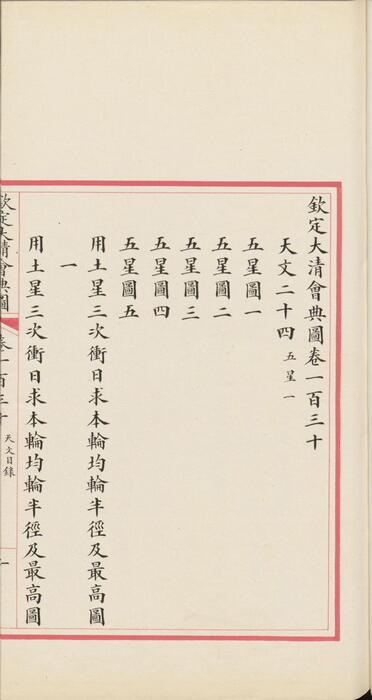 欽定大清會典圖卷一百三十
天文二十四 五星一
五星圖一
五星圖二
五星圖三
五星圖四
五星圖五
用土星三次衝日求本輪均輪半徑及最高圖
一
用土星三次衝日求本輪均輪半徑及最高圖
欽定大清會典圖
卷一百三十 天文目錄